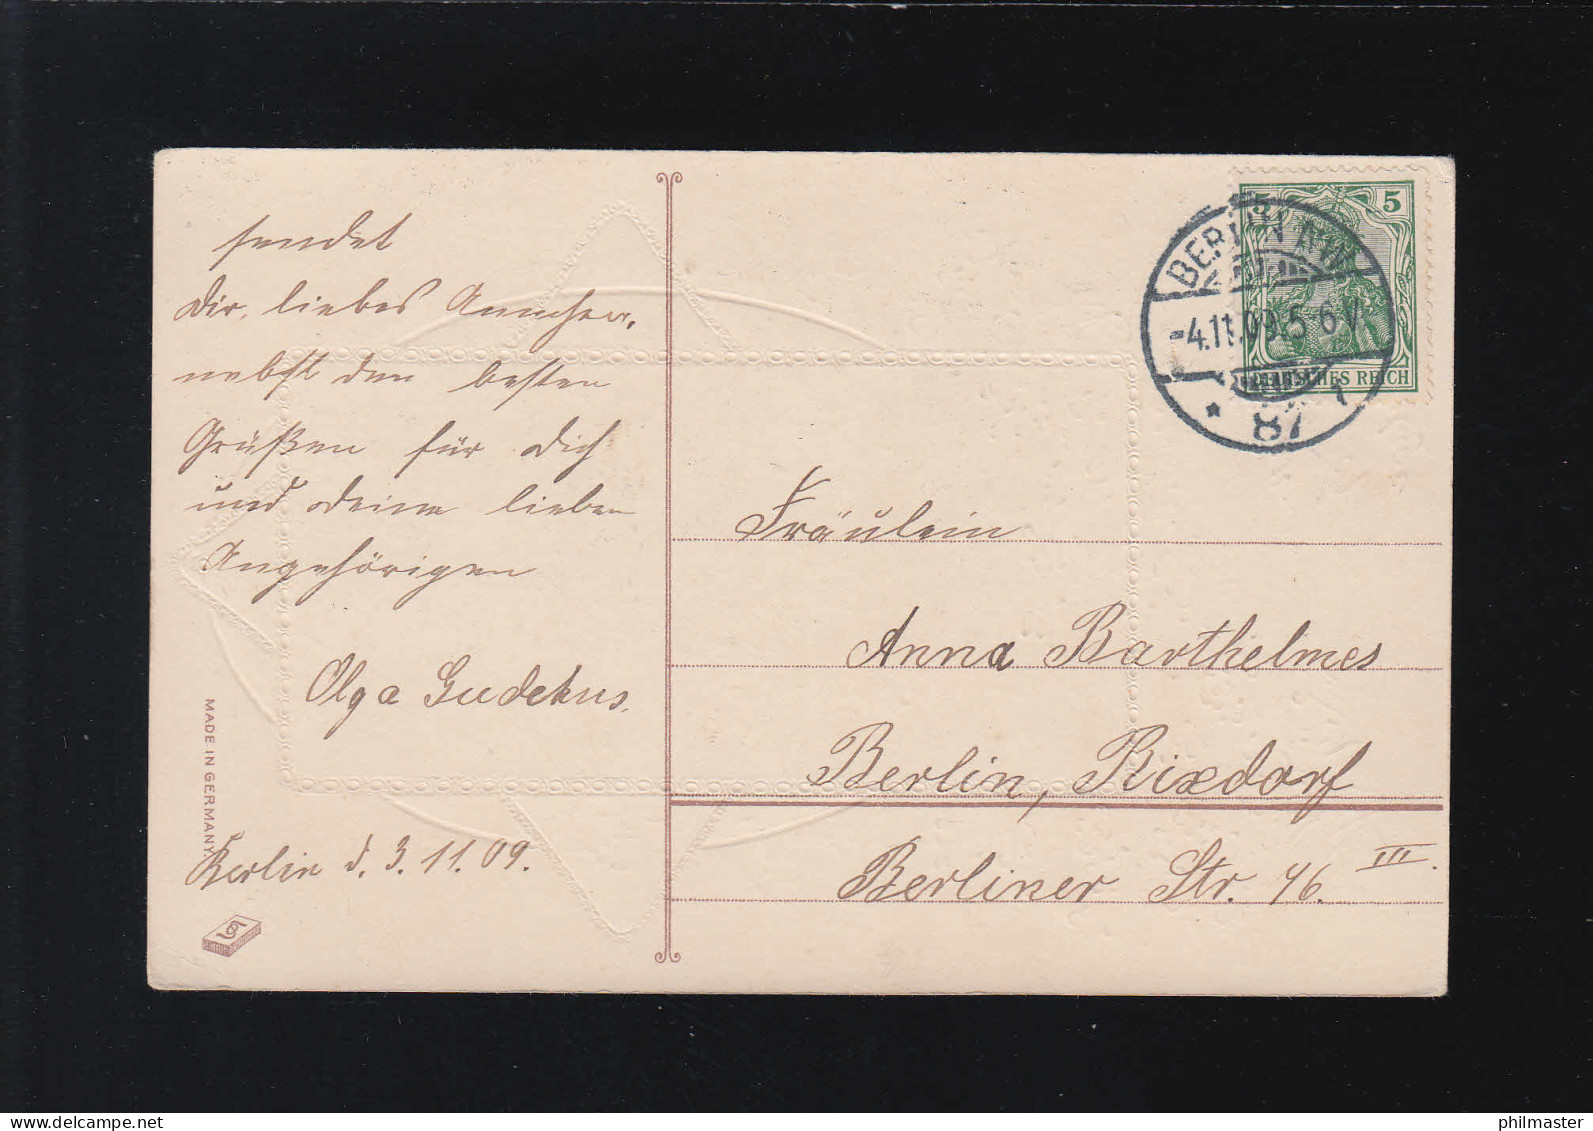 sendet
Dir, liebes Annchen,
nebst den besten
Grüßen für Dich
und Deine lieben
Angehörigen
Olga Gudekus.
Berlin d. 3.11.09.
MADE IN GERMANY
BERLIN N.W.
-4.11.09.5-6V
* 87
5 5
DEUTSCHES REICH
Fräulein
Anna Barthelmes
Berlin, Rixdorf
Berliner Str. 46. III.
www.delcampe.net
philmaster